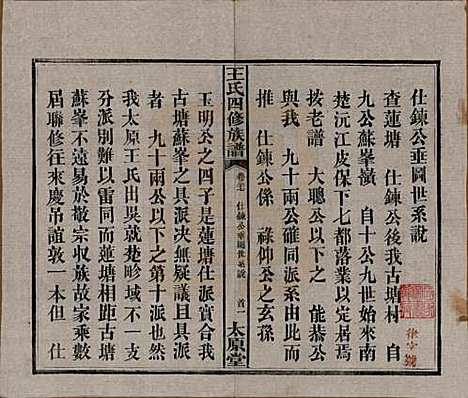 仕鍊公垂圖世系說
查蓮塘　仕鍊公後我古塘村　自
九公蘇峯嶺　自十公九世始來南
楚沅江皮保下七都落業以定居焉
按老譜　大聰公以下之　能恭公
與我　九十兩公確同派系由此類
推　仕鍊公係　祿仰公之玄孫
王氏四修族譜
卷七
仕鍊公垂圖世系說
首一
太原堂
玉明公之四子是蓮塘仕派實合我
古塘蘇峯之具派决無疑議且具派
者　九十兩公以下之第十派也然
我太原王氏出吳就楚畛域不一支
分派別難以雷同而我蓮塘距古塘
蘇峯不遠易於敬宗收族故家乘數
屆聯修往來慶弔誼敦一本但　仕
律字號